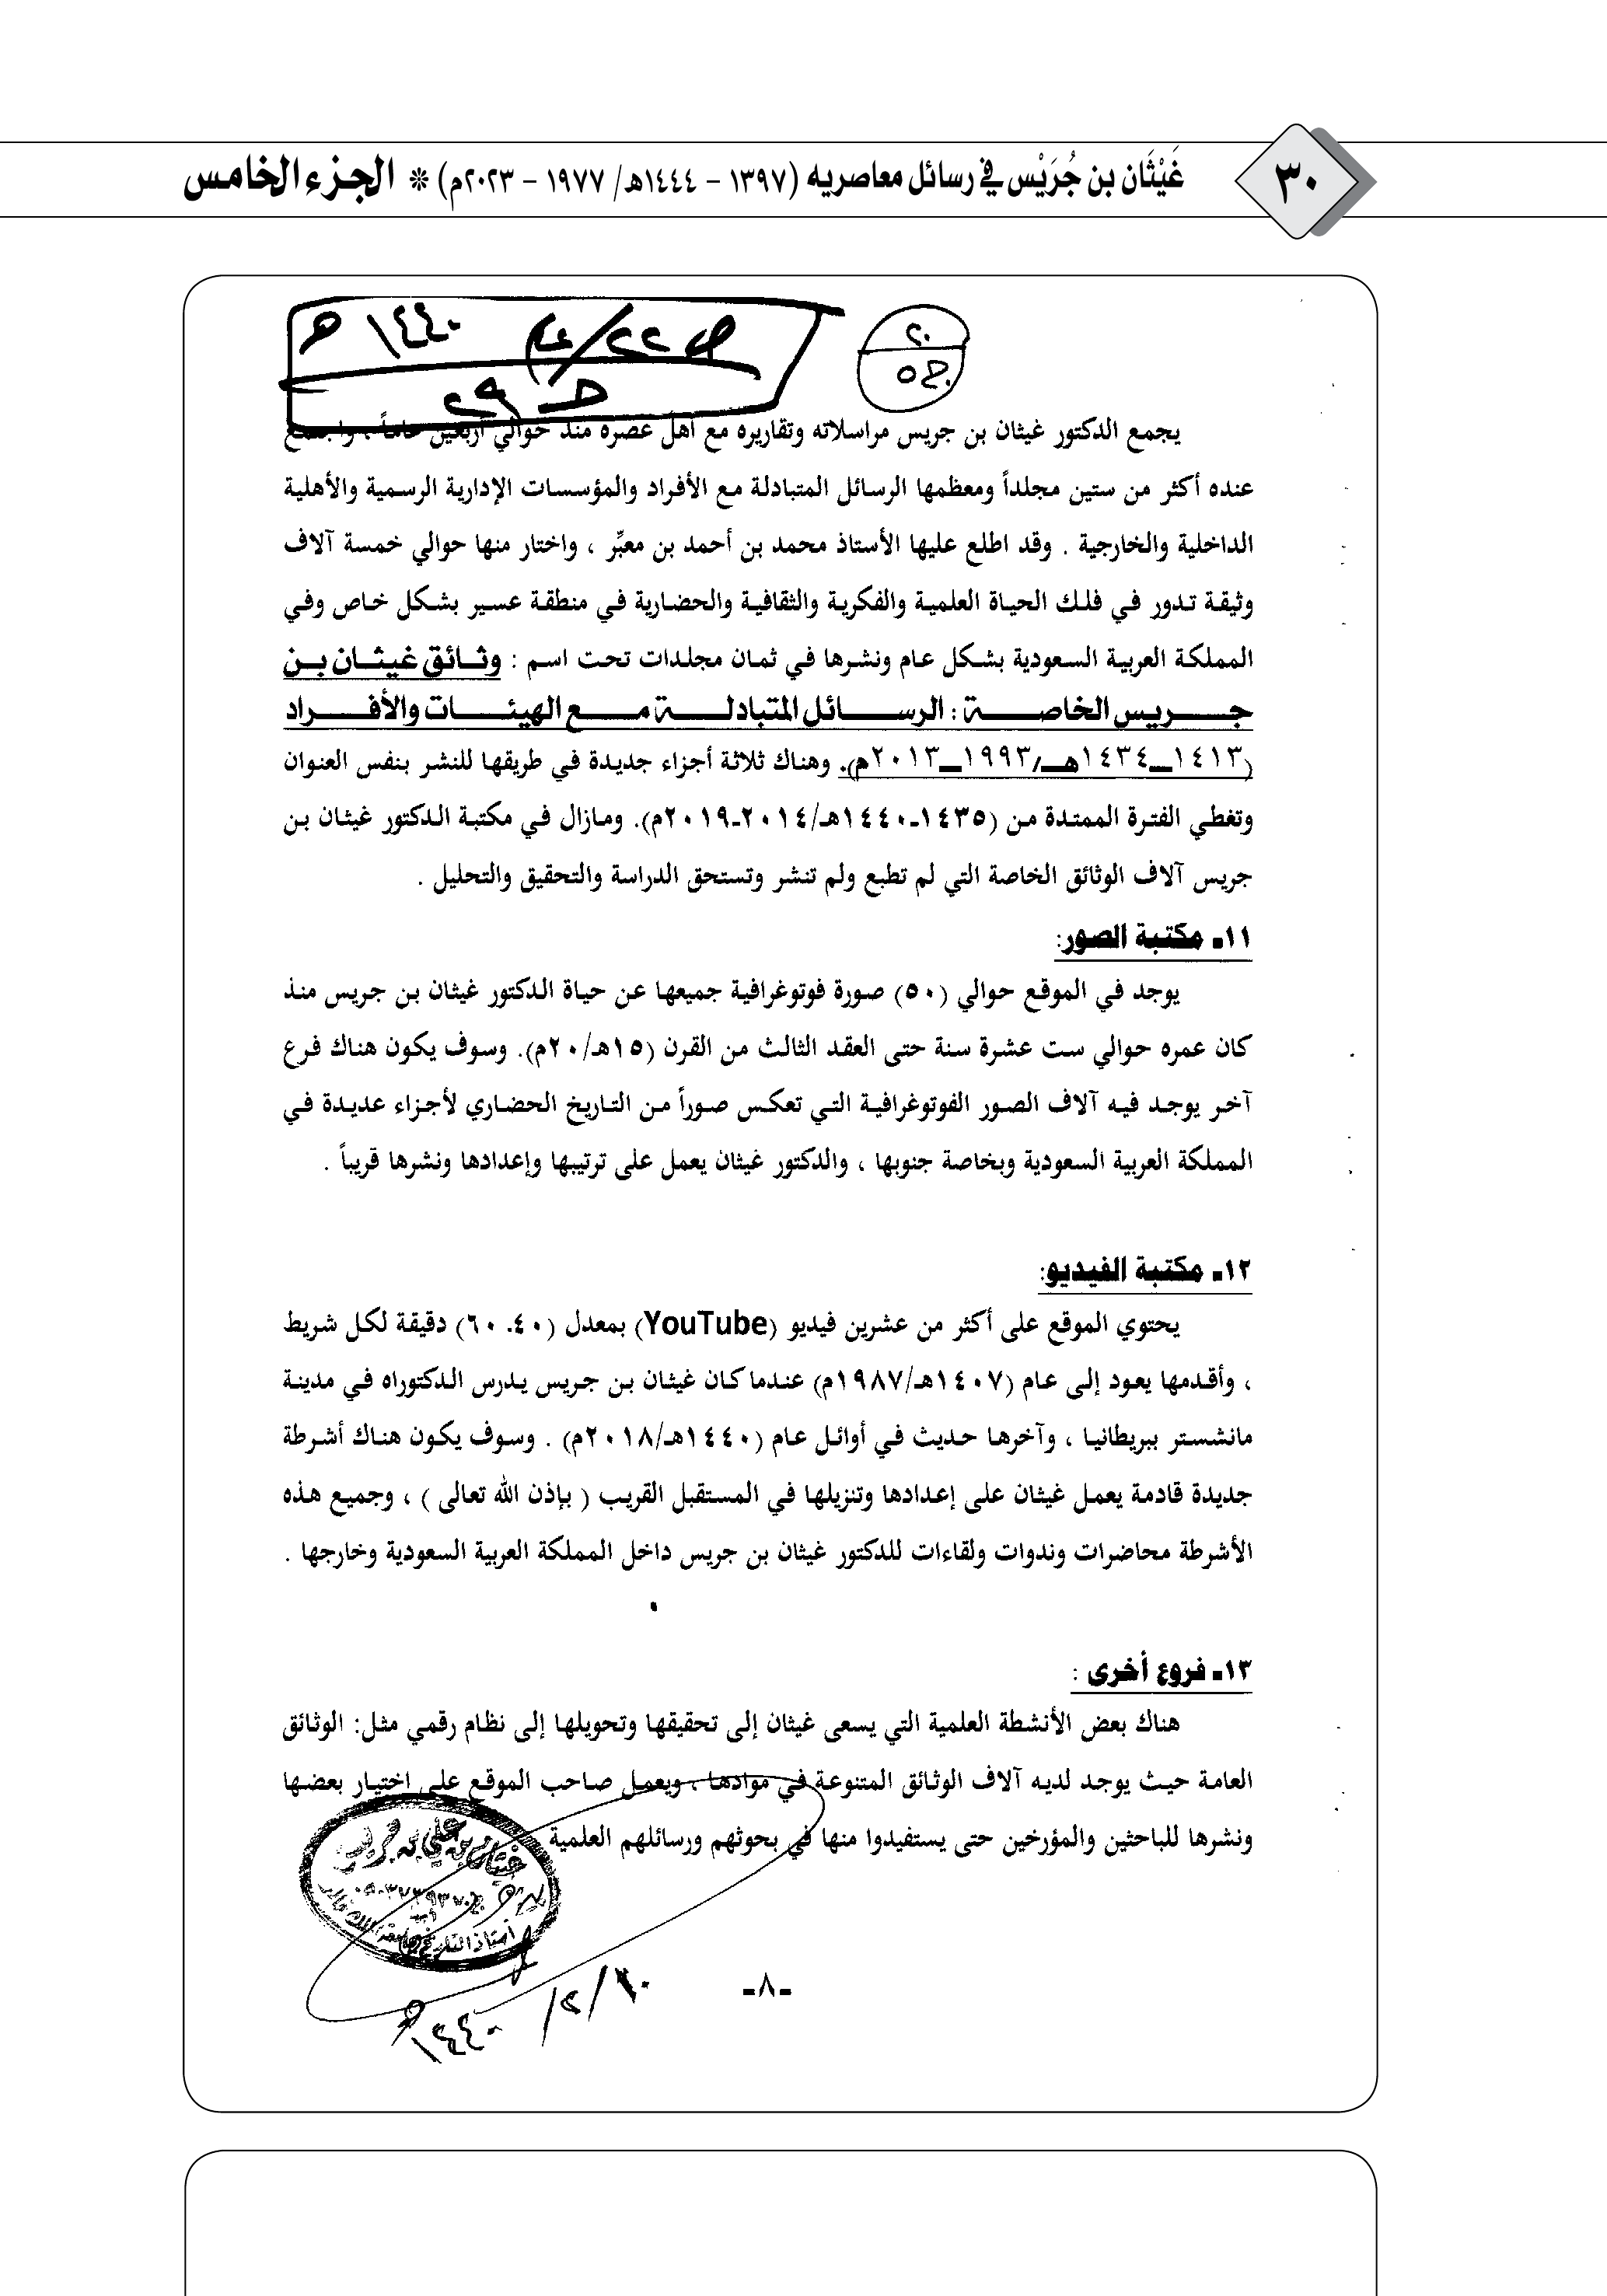 ٣٠
غَيْثَان بن جُرَيْس في رسائل معاصريه (١٣٩٧ - ١٤٤٤هـ/ ١٩٧٧ - ٢٠٢٣م) * الجزء الخامس
١٤٤٠ هـ
٢٠
يجمع الدكتور غيثان بن جريس مراسلاته وتقاريره مع أهل عصره منذ حوالي أربعين عاماً ،
عنده أكثر من ستين مجلداً ومعظمها الرسائل المتبادلة مع الأفراد والمؤسسات الإدارية الرسمية والأهلية
الداخلية والخارجية . وقد اطلع عليها الأستاذ محمد بن أحمد بن معبِّر ، واختار منها حوالي خمسة آلاف
وثيقة تدور في فلك الحياة العلمية والفكرية والثقافية والحضارية في منطقة عسير بشكل خاص وفي
المملكة العربية السعودية بشكل عام ونشرها في ثمان مجلدات تحت اسم : وثائق غيثان بن
جريس الخاصة : الرسائل المتبادلة مع الهيئات والأفراد
(١٤١٣ـ١٤٣٤هـ/١٩٩٣ـ٢٠١٣م). وهناك ثلاثة أجزاء جديدة في طريقها للنشر بنفس العنوان
وتغطي الفترة الممتدة من (١٤٣٥-١٤٤٠هـ/٢٠١٤-٢٠١٩م). ومازال في مكتبة الدكتور غيثان بن
جريس آلاف الوثائق الخاصة التي لم تطبع ولم تنشر وتستحق الدراسة والتحقيق والتحليل .
١١- مكتبة الصور:
يوجد في الموقع حوالي (٥٠) صورة فوتوغرافية جميعها عن حياة الدكتور غيثان بن جريس منذ
كان عمره حوالي ست عشرة سنة حتى العقد الثالث من القرن (١٥هـ/٢٠م). وسوف يكون هناك فرع
آخر يوجد فيه آلاف الصور الفوتوغرافية التي تعكس صوراً من التاريخ الحضاري لأجزاء عديدة في
المملكة العربية السعودية وبخاصة جنوبها ، والدكتور غيثان يعمل على ترتيبها وإعدادها ونشرها قريباً .
١٢- مكتبة الفيديو:
يحتوي الموقع على أكثر من عشرين فيديو (YouTube) بمعدل (٤٠- ٦٠) دقيقة لكل شريط
، وأقدمها يعود إلى عام (١٤٠٧هـ/١٩٨٧م) عندما كان غيثان بن جريس يدرس الدكتوراه في مدينة
مانشستر ببريطانيا ، وآخرها حديث في أوائل عام (١٤٤٠هـ/٢٠١٨م) . وسوف يكون هناك أشرطة
جديدة قادمة يعمل غيثان على إعدادها وتنزيلها في المستقبل القريب ( بإذن الله تعالى ) ، وجميع هذه
الأشرطة محاضرات وندوات ولقاءات للدكتور غيثان بن جريس داخل المملكة العربية السعودية وخارجها .
١٣- فروع أخرى :
هناك بعض الأنشطة العلمية التي يسعى غيثان إلى تحقيقها وتحويلها إلى نظام رقمي مثل: الوثائق
العامة حيث يوجد لديه آلاف الوثائق المتنوعة في موادها ، ويعمل صاحب الموقع على اختيار بعضها
ونشرها للباحثين والمؤرخين حتى يستفيدوا منها في بحوثهم ورسائلهم العلمية
غيثان بن علي بن جريس
-٨-
١٤٤٠